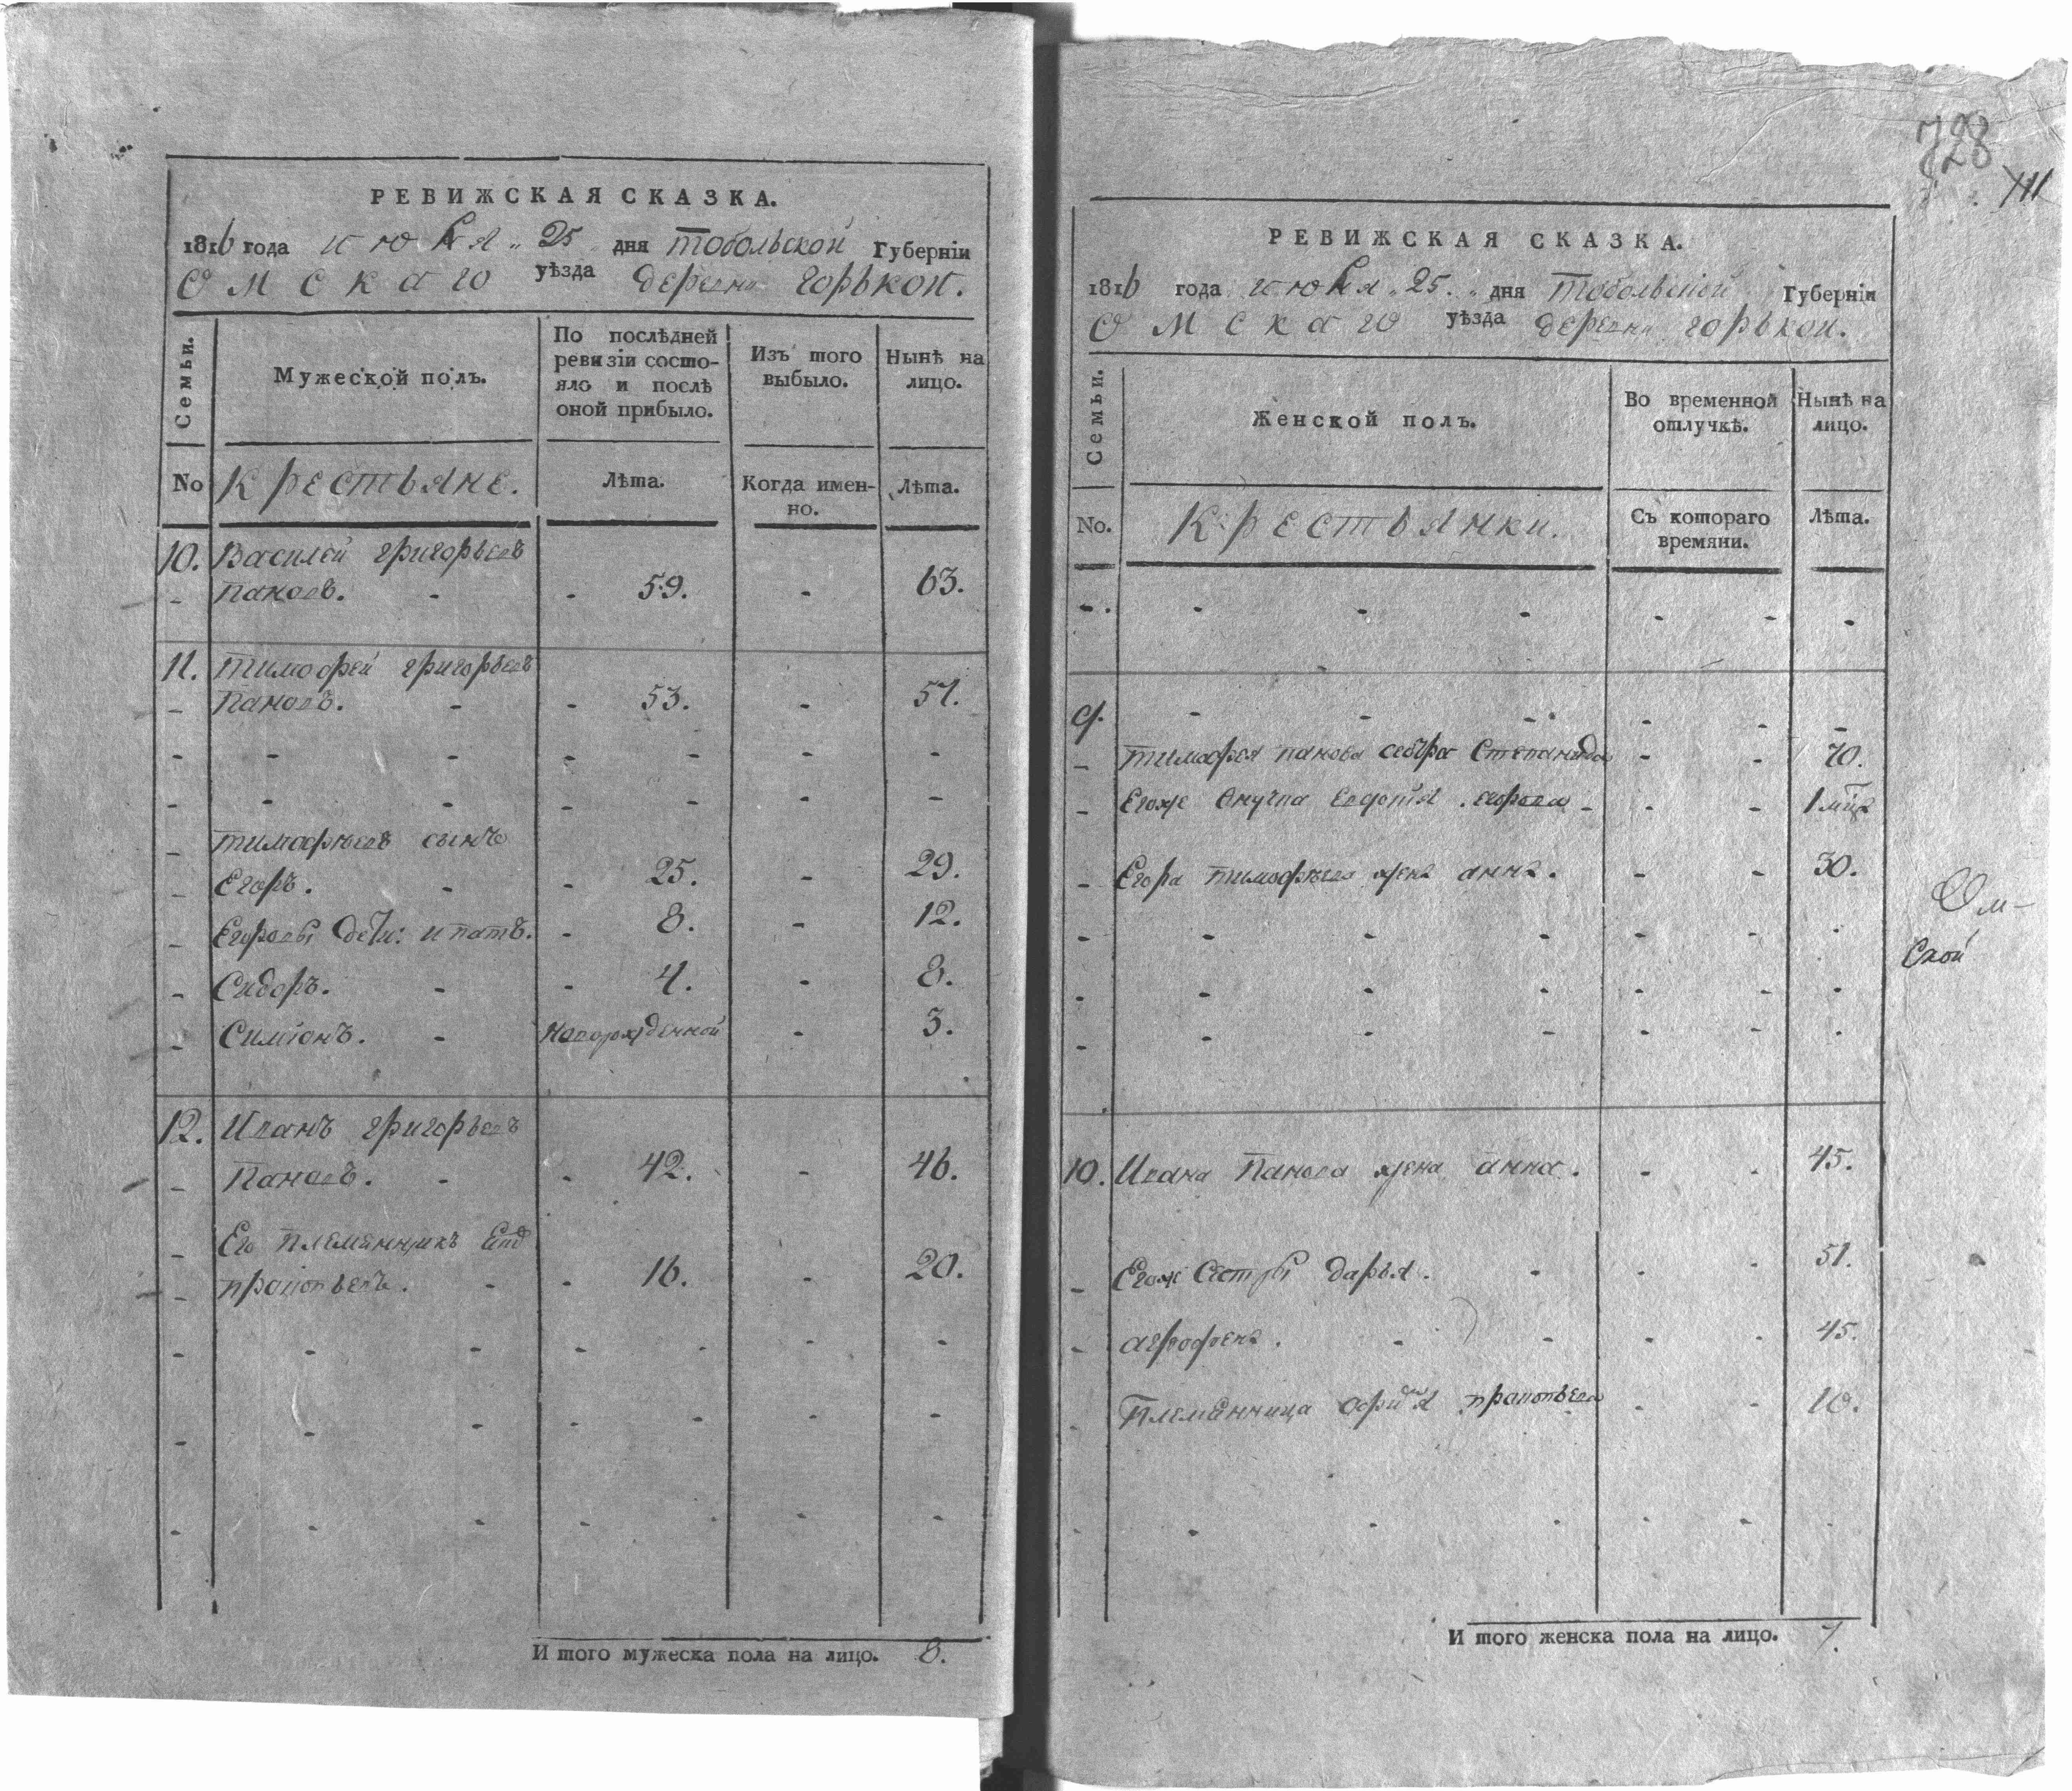 РЕВИЖСКАЯ СКАЗКА.
1816 года июня „ 25 „ дня тобольской Губерніи
Омскаго уѣзда деревни горькой.
Семьи.
Мужеской полъ.
По послѣдней ревизіи состояло и послѣ оной прибыло.
Изъ того выбыло.
Нынѣ на лицо.
No крестьяне. Лѣта. Когда именно. Лѣта.
10. Василей григорьевъ
- пановъ. - - 59. - 63.
11. тимофей григорьевъ
- Пановъ. - - 53. - 57.
- - - - - - -
- - - - - - -
- тимофѣевъ сынъ
- Егоръ. - - 25. - 29.
- Егоровы дети: ипатъ. - 8. - 12.
- Сидоръ. - - 4. - 8.
- Симіонъ. - новорожденной - 3.
12. Иванъ григорьевъ
- Пановъ. - - 42. - 46.
- Его племянникъ
- прокопьевъ. - - 16. - 20.
- - - - - - -
- - - - - - -
- - - - - - -
И того мужеска пола на лицо. 8.
728
РЕВИЖСКАЯ СКАЗКА.
1816 года июня „ 25. „ дня Тобольской Губерніи
Омскаго уѣзда деревни горькои.
Семьи.
Женской полъ.
Во временной отлучкѣ.
Нынѣ на лицо.
No. Крестьянки. Съ котораго времяни. Лѣта.
- . - - - - - -
9. - - - - - -
- тимофея панова Степанида - - 70.
- Егоже внучка Евдотья егорова - - - 1 мца
- Егора тимофѣева жена анна. - - 30.
- - - - - - -
- - - - - - -
- - - - - - -
10. Ивана Панова жена анна. - - 45.
- Егоже Сестры дарья. - - - 51.
- аграфена. - - - - 45.
- Племянница прокопьева - - 10.
- - - - - - -
И того женска пола на лицо. 7.
Ом-
ской